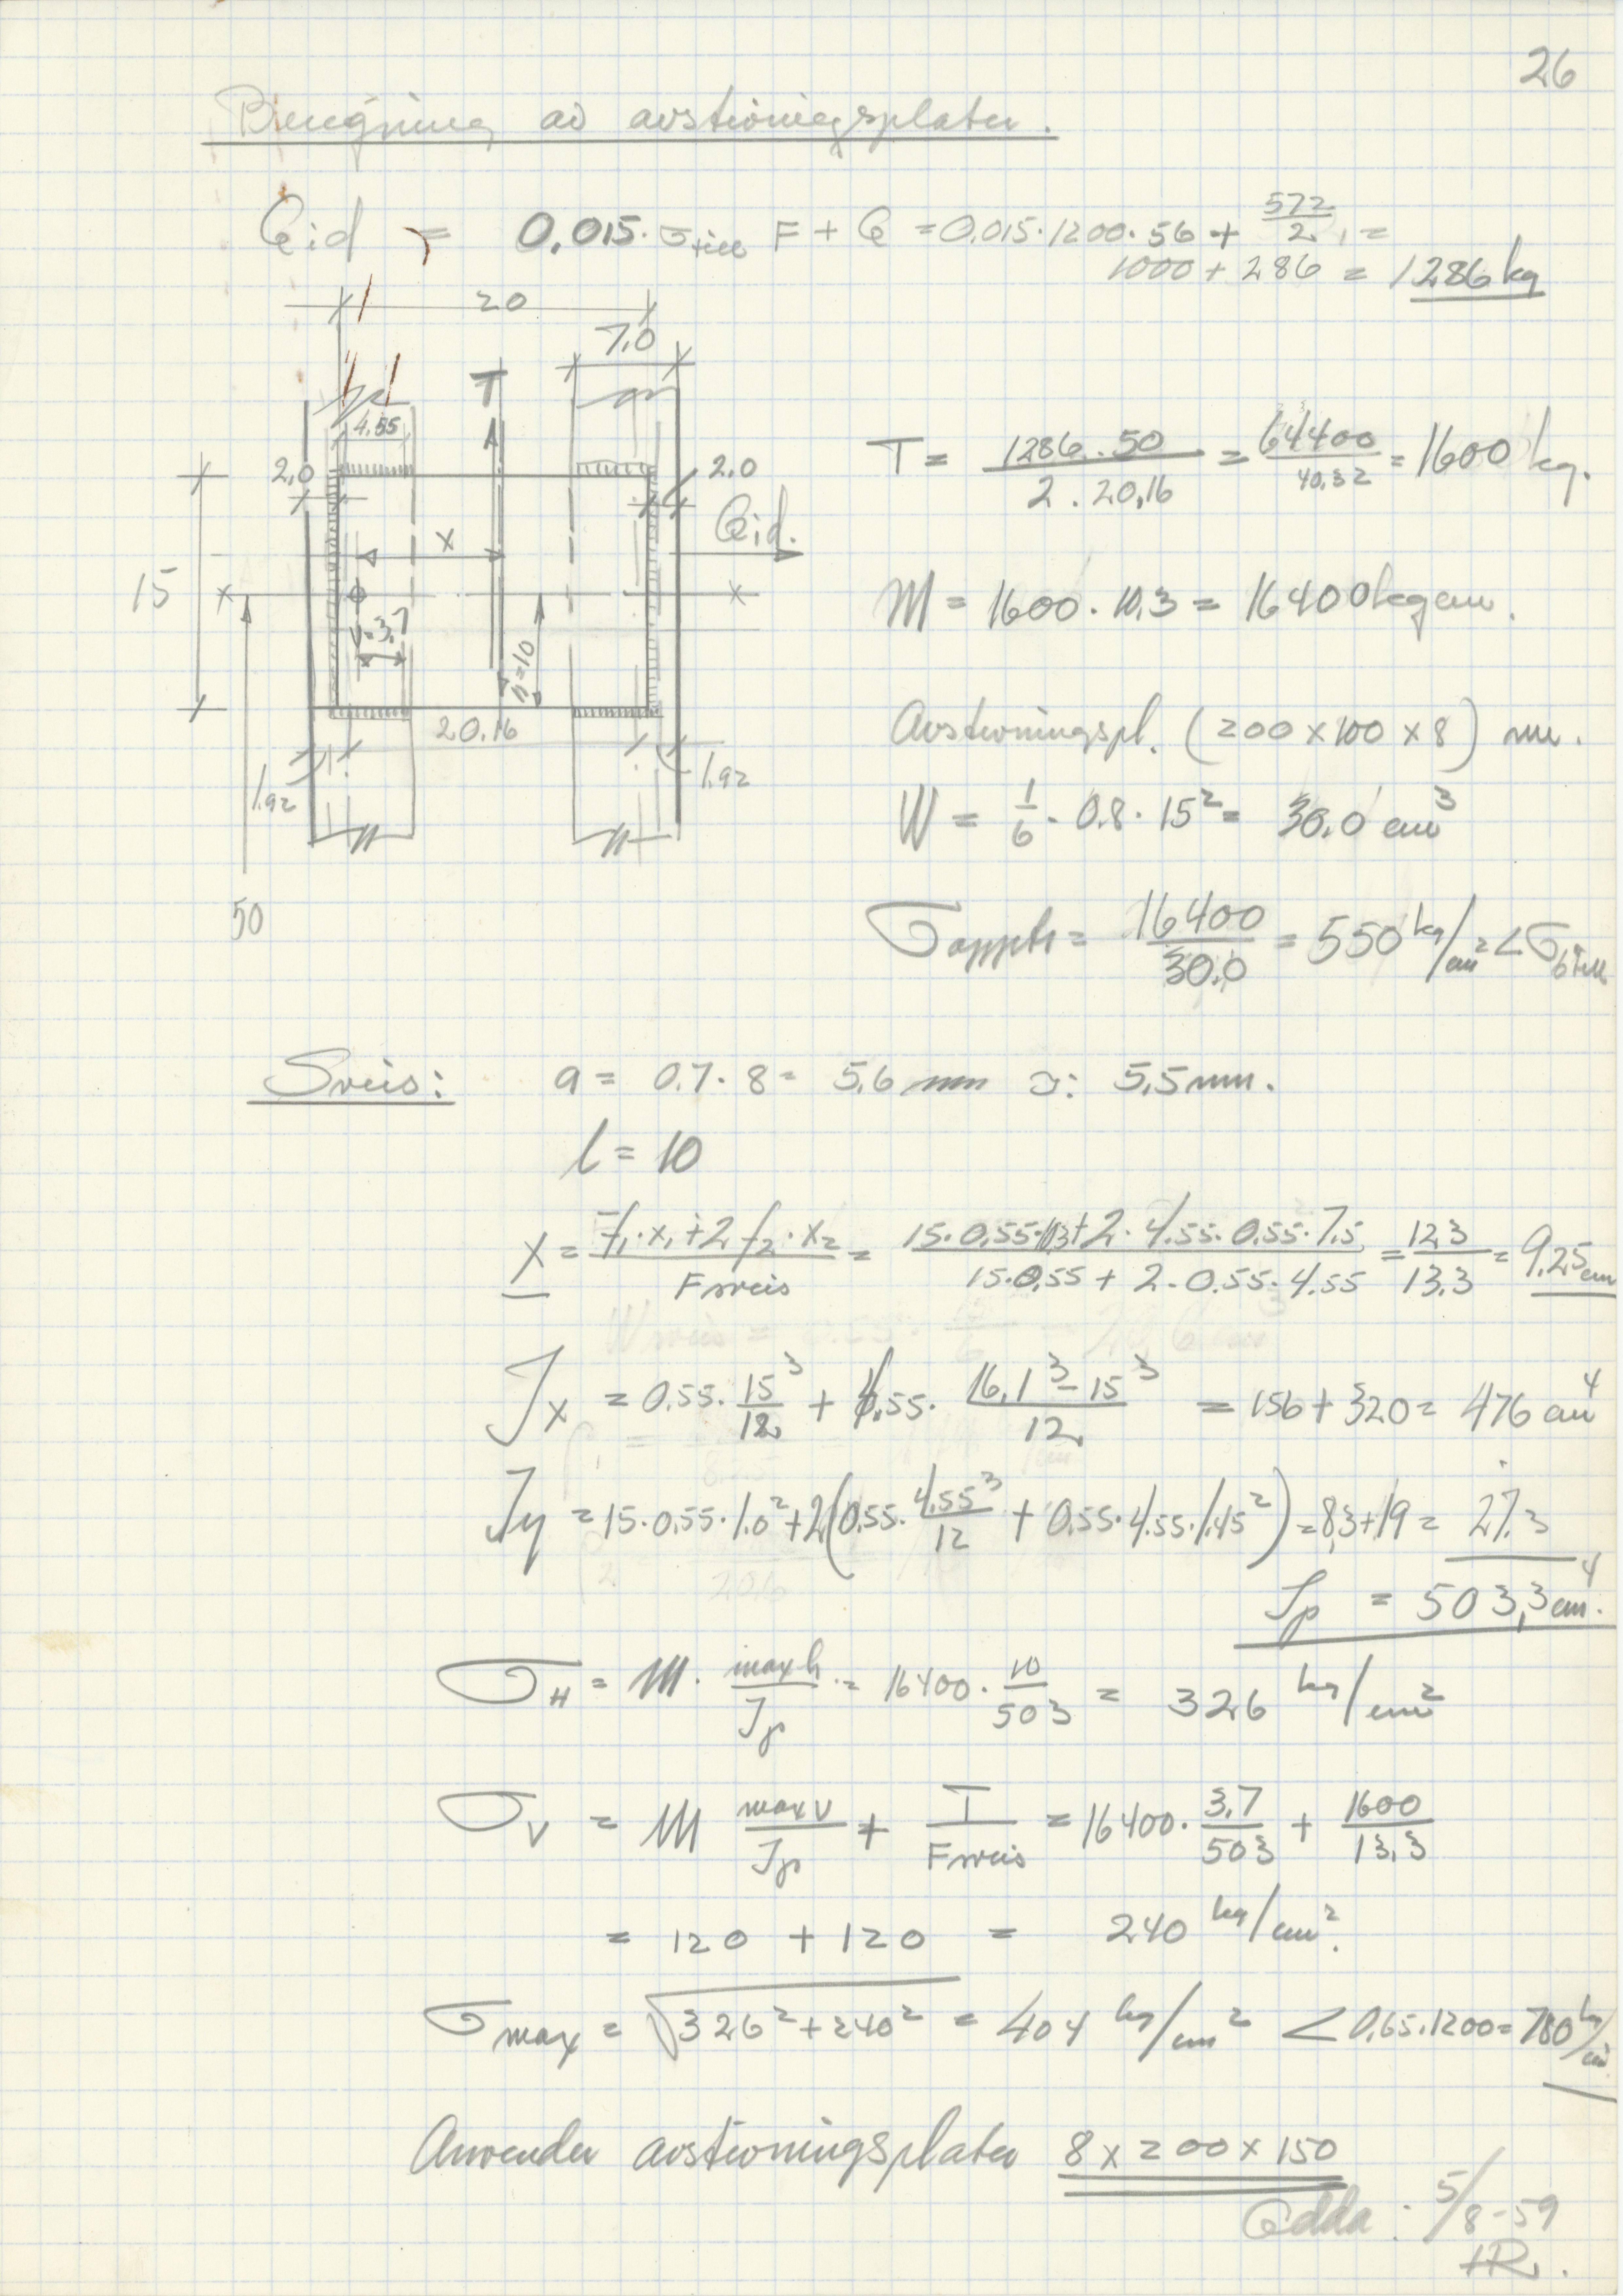 26
Beregning av avstivningsplater.
Qid = 0,015 · σtill F + Q = 0,015·1200·56 + 572/2 =
1000 + 286 = 1286 kg
20
7,0
T
4,55
2,0
2.0
Qid.
x
15
x
x
v=3,7
h=10
20,16
1,92
1,92
50
T = 1286 · 50 / 2 · 20,16 = 64400 / 40,32 = 1600 kg.
M = 1600 · 10,3 = 16400 kgcm.
Avstivningspl. (200 x 100 x 8) mm.
W = 1/6 · 0,8 · 15² = 30,0 cm³
σopptr = 16400 / 30,0 = 550 kg/cm² < σbtill
Sveis: a = 0,7 · 8 = 5,6 mm ɔ: 5,5 mm.
l = 10
x = F₁·x₁ + 2 f₂·x₂ / Fsveis = 15·0,55·10,3 + 2·4,55·0,55·7,5 / 15·0,55 + 2·0,55·4,55 = 123 / 13,3 = 9,25 cm
Jx = 0,55 · 15³/12 + 4,55 · 16,1³ − 15³ / 12 = 156 + 320 = 476 cm⁴
Jy = 15·0,55·1,0² + 2(0,55 · 4,55³/12 + 0,55·4,55·1,45²) = 8,3 + 19 = 27,3
Jp = 503,3 cm⁴.
σH = M · max h / Jp = 16400 · 10/503 = 326 kg/cm²
σV = M max v / Jp + T / Fsveis = 16400 · 3,7/503 + 1600/13,3
= 120 + 120 = 240 kg/cm².
σmax = √326² + 240² = 404 kg/cm² < 0,65·1200 = 780 kg/cm²
Anvender avstivningsplater 8 x 200 x 150
Odda. 5/8-59
HR.